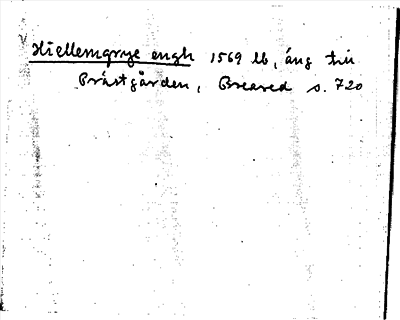 Hiellemgrye engh 1569 lb, äng till
Prästgården, Breared s. 720